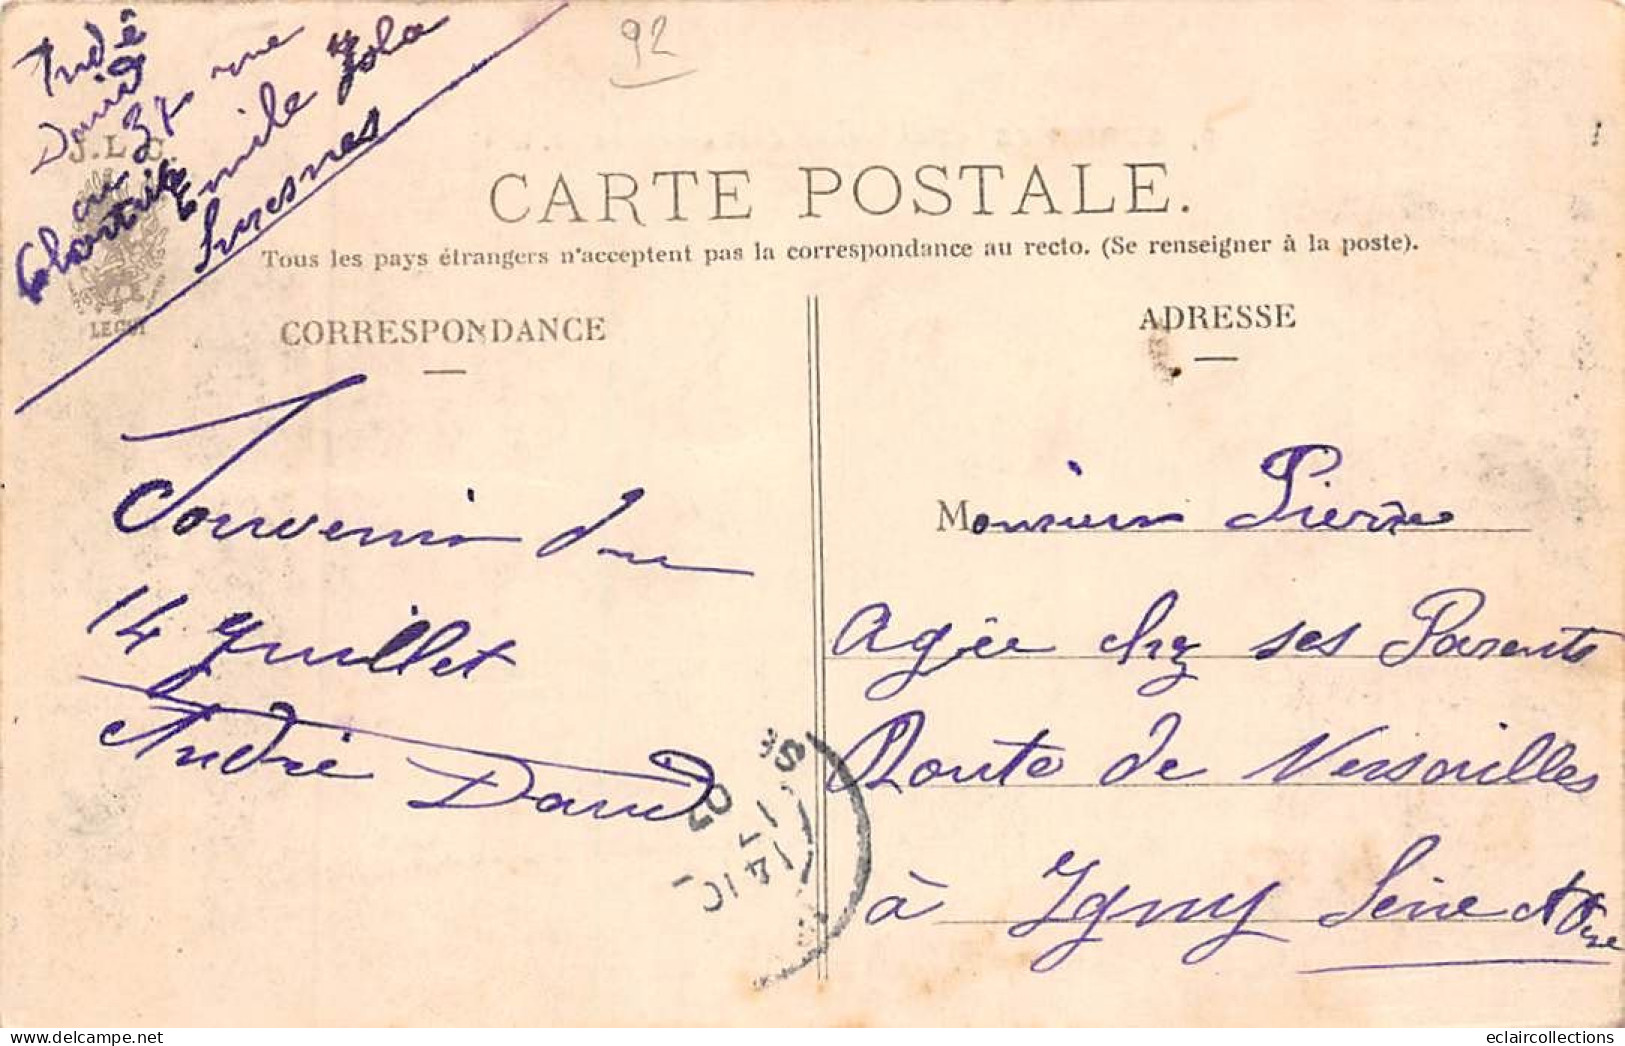 André
David
37 rue
Emile Zola
Suresnes
92
J.L.C.
CARTE POSTALE.
Tous les pays étrangers n'acceptent pas la correspondance au recto. (Se renseigner à la poste).
CORRESPONDANCE
ADRESSE
Souvenir du
14 Juillet
André David
Monsieur Pierre
Agée chez ses Parents
Route de Versailles
à Igny Seine et Oise
eclaircollections